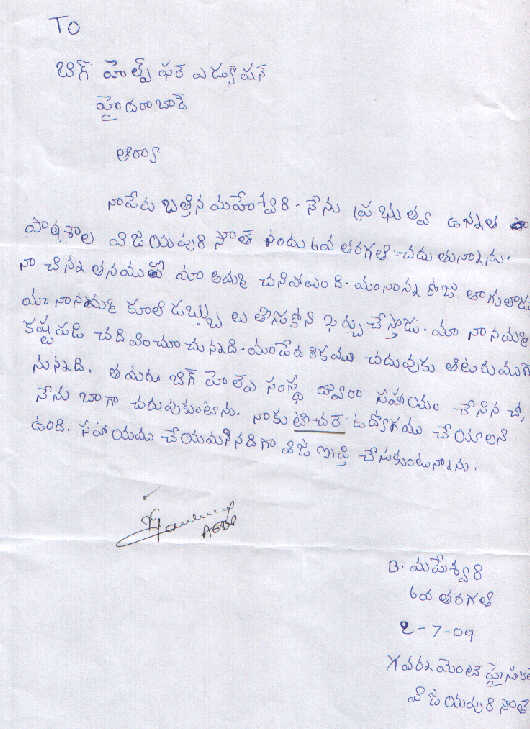 To
బిగ్ హెల్ప్ ఫర్ ఎడ్యుకేషన్
హైదరాబాద్
ఆర్యా
నాపేరు బత్తిన మహేశ్వరి. నేను ప్రభుత్వ ఉన్నత
పాఠశాల విజయపురి సౌత్ నందు 6వ తరగతి చదువుతున్నాను.
నా చిన్నతనములో మా అమ్మ చనిపోయింది. మా నాన్న రోజు తాగుతాడు
మా నానమ్మ కూలి డబ్బులు తీసుకొని ఖర్చు చేస్తాడు. మా నానమ్మ
కష్టపడి చదివించుచున్నది. మా పేదరికము చదువుకు ఆటంకముగా
నున్నది. తమరు బిగ్ హెల్ప్ సంస్థ ద్వారా సహాయం చేసినచో,
నేను బాగా చదువుకుంటాను. నాకు టీచర్ ఉద్యోగము చేయాలని
ఉంది. సహాయము చేయమని మరిగా విజ్ఞప్తి చేసుకుంటున్నాను.
B. మహేశ్వరి
6వ తరగతి
2-7-09
గవరన్నమెంట్ హైస్కూల్
విజయపురి సౌత్